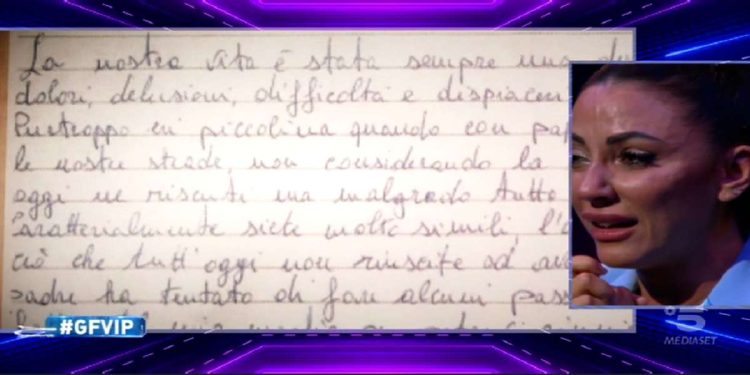 La nostra vita è stata sempre una di
dolori, delusioni, difficoltà e dispiacer
Purtroppo eri piccolina quando con pap
le nostre strade, non considerando la
oggi ne risenti ma malgrado tutto
Caratterialmente siete molto simili, l'a
ciò che tutt'oggi non riuscite ad av
padre ha tentato di fare alcuni pass
#GFVIP
5
MEDIASET